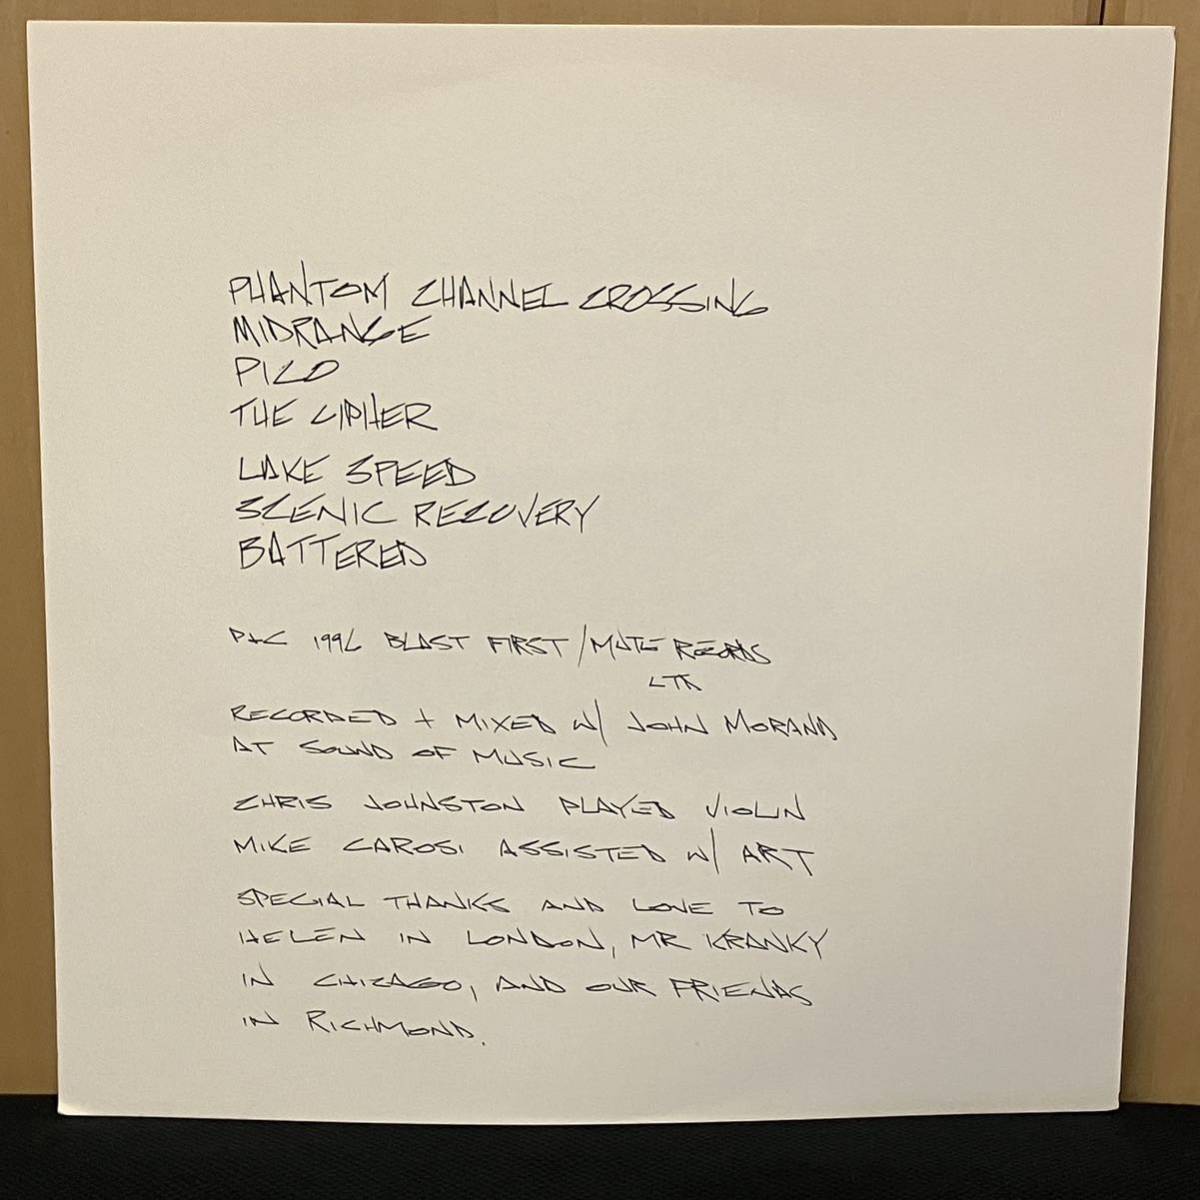 PHANTOM CHANNEL CROSSING
MIDRANGE
PICO
THE CIPHER
LAKE SPEED
SCENIC RECOVERY
BATTERED
P+C 1996 BLAST FIRST/MUTE RECORDS
LTD
RECORDED + MIXED W/ JOHN MORAND
AT SOUND OF MUSIC
CHRIS JOHNSTON PLAYED VIOLIN
MIKE CAROSI ASSISTED W/ ART
SPECIAL THANKS AND LOVE TO
HELEN IN LONDON, MR KRANKY
IN CHICAGO, AND OUR FRIENDS
IN RICHMOND.